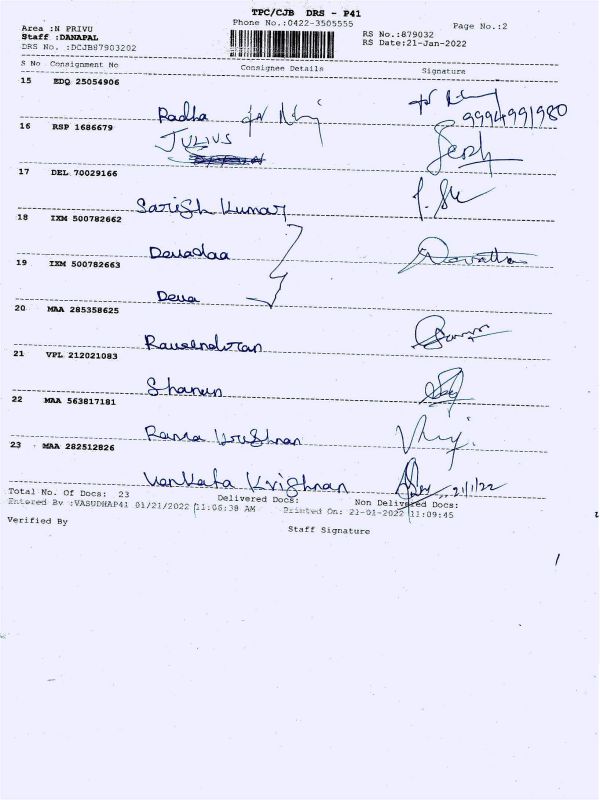 TPC/CJB DRS - P41
Phone No.:0422-3505555
Page No.:2
Area :N PRIVU
Staff :DANAPAL
DRS No. :DCJB87903202
RS No.:879032
RS Date:21-Jan-2022
S No Consignment No Consignee Details Signature
15 EDQ 25054906
Radha
9994991980
16 RSP 1686679
JULIUS
17 DEL 70029166
Satish Kumar
18 IXM 500782662
Devadaa
19 IXM 500782663
Deva
20 MAA 285358625
21 VPL 212021083
22 MAA 563817181
Rama Krishnan
23 MAA 282512826
Venkata Krishnan
21/1/22
Total No. Of Docs: 23 Delivered Docs: Non Delivered Docs:
Entered By :VASUDHAP41 01/21/2022 11:06:38 AM Printed On: 21-01-2022 11:09:45
Verified By
Staff Signature